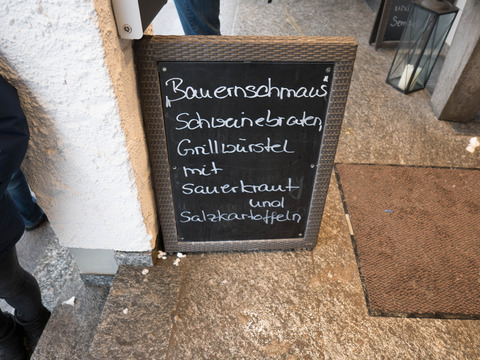 Bauernschmaus
Schweinebraten,
Grillwürstel
mit
Sauerkraut
und
Salzkartoffeln